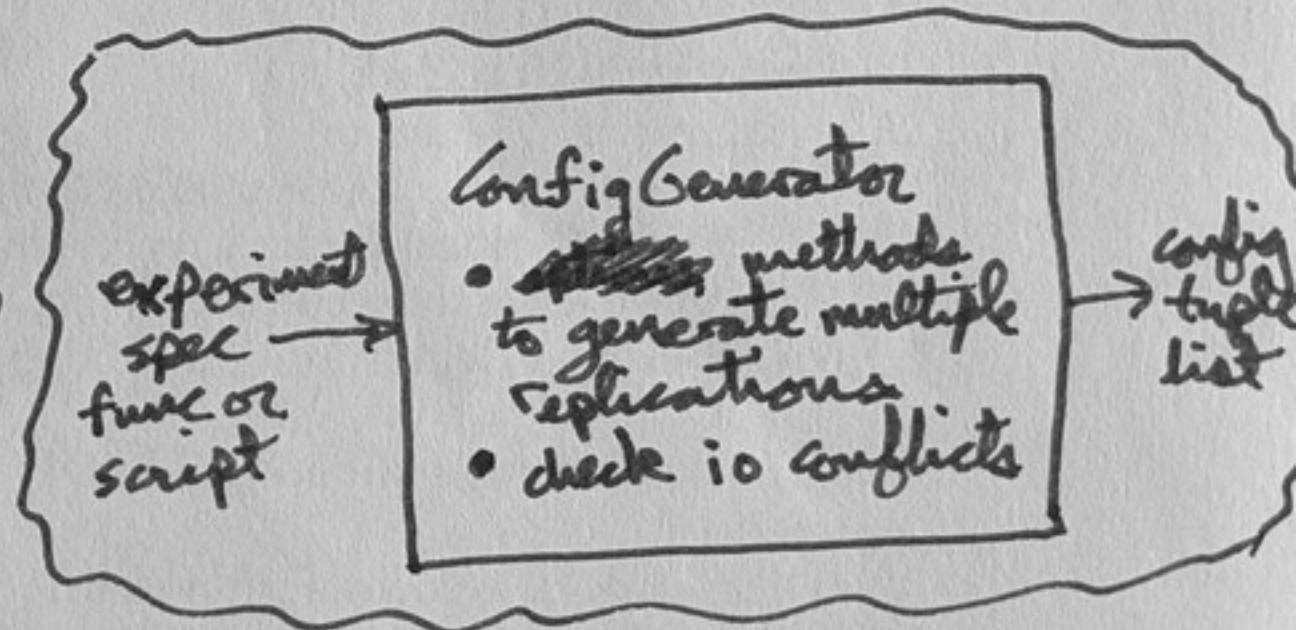 experiment
spec
func or
script
ConfigGenerator
• methods
to generate multiple
replications
• check io conflicts
config
tuple
list